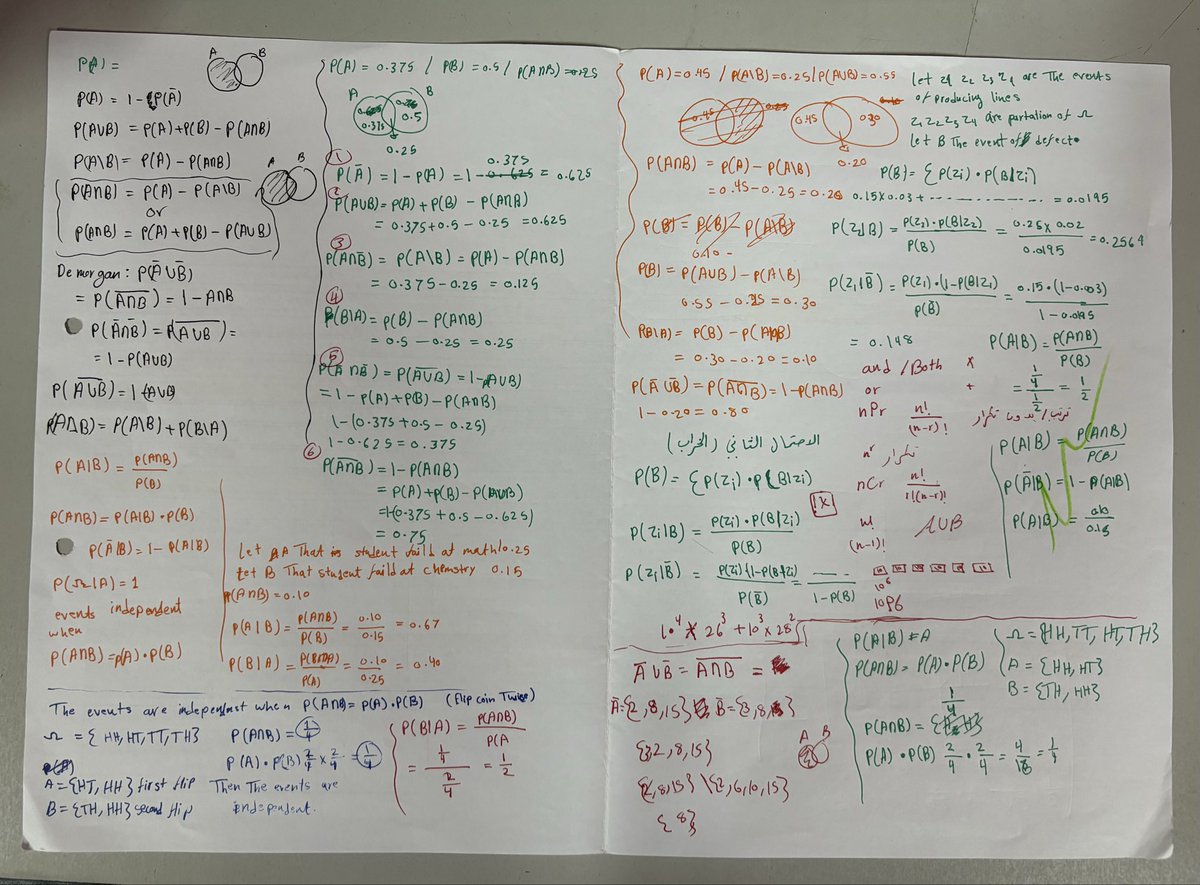 P(A) =
A B
P(A) = 1 - P(Ā)
P(A∪B) = P(A)+P(B) - P(A∩B)
P(A\B) = P(A) - P(A∩B)
A B
P(A∩B) = P(A) - P(A\B)
or
P(A∩B) = P(A) + P(B) - P(A∪B)
De morgan: P(Ā∪B̄)
= P(A∩B)̅ = 1 - A∩B
P(Ā∩B̄) = P(A∪B)̅ =
= 1 - P(A∪B)
P(A∪B)̅ = 1-(A∪B)
P(A∆B) = P(A\B) + P(B\A)
P(A|B) = P(A∩B) / P(B)
P(A∩B) = P(A|B) · P(B)
P(Ā|B) = 1 - P(A|B)
P(Ω|A) = 1
events independent
when
P(A∩B) = P(A) · P(B)
P(A) = 0.375 / P(B) = 0.5 / P(A∩B) = 0.25
A B
0.375 0.5
0.25
①
0.375
P(Ā) = 1 - P(A) = 1 - 0.625 = 0.625
2
P(A∪B) = P(A) + P(B) - P(A∩B)
= 0.375 + 0.5 - 0.25 = 0.625
③
P(A∩B̄) = P(A\B) = P(A) - P(A∩B)
= 0.375 - 0.25 = 0.125
④
P(B\A) = P(B) - P(A∩B)
= 0.5 - 0.25 = 0.25
⑤
P(Ā∩B̄) = P(A∪B)̅ = 1-P(A∪B)
= 1 - P(A) + P(B) - P(A∩B)
1 - (0.375 + 0.5 - 0.25)
1 - 0.625 = 0.375
⑥
P(A∩B)̅ = 1 - P(A∩B)
= P(A) + P(B) - P(A∪B)
= 1-(0.375 + 0.5 - 0.625)
= 0.75
Let A That is student faild at math 0.25
Let B That student faild at chemstry 0.15
P(A∩B) = 0.10
P(A|B) = P(A∩B) / P(B) = 0.10 / 0.15 = 0.67
P(B|A) = P(B∩A) / P(A) = 0.10 / 0.25 = 0.40
The events are independent when P(A∩B) = P(A) · P(B) (Flip coin Twise)
Ω = {HH, HT, TT, TH} P(A∩B) = 1/4
P(A) · P(B) 2/4 × 2/4 = 1/4
A = {HT, HH} first flip Then The events are
B = {TH, HH} second flip independent.
P(B|A) = P(A∩B) / P(A
= 1/4 / 2/4 = 1/2
P(A) = 0.45 / P(A\B) = 0.25 / P(A∪B) = 0.55
0.45 0.25 0.45 0.30
0.20
P(A∩B) = P(A) - P(A\B)
= 0.45 - 0.25 = 0.20
P(B) = P(B) - P(A\B)
0.10 -
P(B) = P(A∪B) - P(A\B)
0.55 - 0.25 = 0.30
P(B\A) = P(B) - P(A∩B)
= 0.30 - 0.20 = 0.10
P(Ā∪B̄) = P(A∩B)̅ = 1 - P(A∩B)
1 - 0.20 = 0.80
الاحتمال الثاني
P(B) = Σ P(Zi) · P(B|Zi)
P(Zi|B) = P(Zi) · P(B|Zi) / P(B)
P(Zi|B̄) = P(Zi)·(1-P(B|Zi) / P(B̄) = ---- / 1-P(B)
10^4 * 26^3 + 10^3 × 28^2
Let z1 z2 z3 z4 are The events
of producing lines
z1 z2 z3 z4 are partation of Ω
Let B The event of defecte
P(B) = Σ P(Zi) · P(B|Zi)
0.15×0.03 + ------------ = 0.0195
P(Z2|B) = P(Z2) · P(B|Z2) / P(B) = 0.25 × 0.02 / 0.0195 = 0.2564
P(Z1|B̄) = P(Z1) · (1-P(B|Z1) / P(B̄) = 0.15 · (1-0.003) / 1-0.0195
= 0.148
and /Both ×
or +
nPr n! / (n-r)! ترتيب/بدون تكرار
n^r تكرار
nCr n! / r!(n-r)!
n!
(n-1)!
A∪B
10^6
10P6
P(A|B) = P(A∩B) / P(B)
= 1/4 / 1/2 = 1/2
P(A|B) = P(A∩B) / P(B)
P(Ā|B) = 1 - P(A|B)
P(A|B) = / 0.15
Ā∪B̄ = A∩B̅ =
Ā = {2,8,15} B̄ = {3,8,}
{3,2,8,15}
{2,8,15} \ {2,6,10,15}
{8}
A B
P(A|B) = A
P(A∩B) = P(A) · P(B)
1/4
P(A∩B) = {HH}
P(A) · P(B) 2/4 · 2/4 = 4/16 = 1/4
Ω = {HH, TT, HT, TH}
A = {HH, HT}
B = {TH, HH}